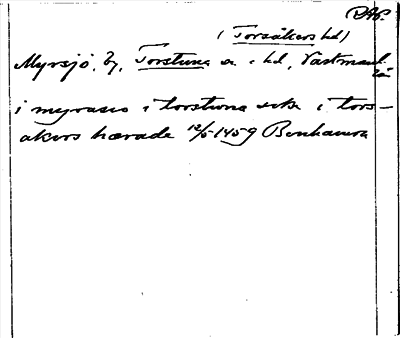 DAP.
(Torsåkers hd)
Myrsjö, by, Torstuna s. o. hd, Västmanl.
län
i myrasio i torstwna sokn i tors-
akers hærade 12/5 1459 Bonhamra